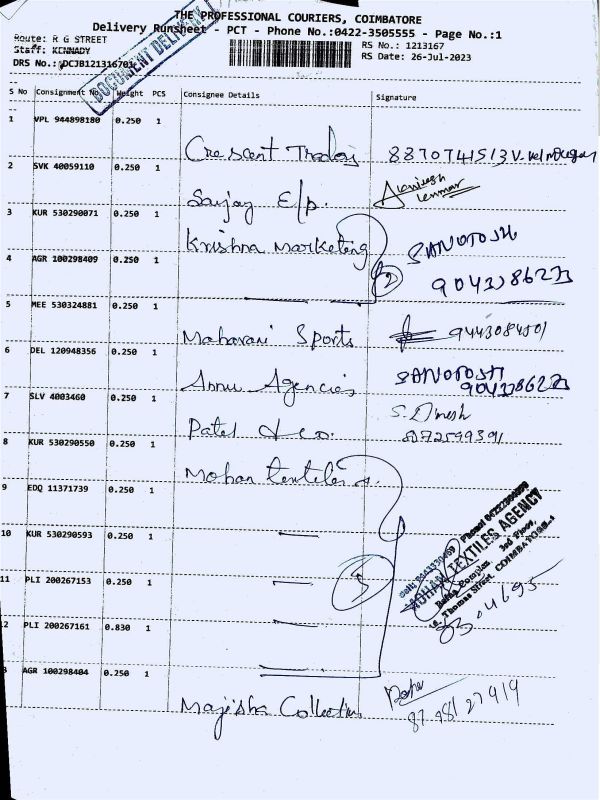 THE PROFESSIONAL COURIERS, COIMBATORE
Delivery Runsheet - PCT - Phone No.:0422-3505555 - Page No.:1
Route: R G STREET
RS No.: 1213167
Staff: KENNADY
RS Date: 26-Jul-2023
DRS No.: DCJB1213167
DOCUMENT DELIVERY
S No Consignment No. Weight PCS Consignee Details Signature
1 VPL 944898180 0.250 1
Crescent Traders
2 SVK 40059110 0.250 1
Sanjay E/p.
3 KUR 530290071 0.250 1
Krishna Marketing
SANOTOSH
4 AGR 100298409 0.250 1
2
5 MEE 530324881 0.250 1
Maharani Sports 9443084501
6 DEL 120948356 0.250 1
Annu Agencies SANOTOSH
7 SLV 4003460 0.250 1
Patel & co. S. Dinesh
8 KUR 530290550 0.250 1
Mohan textiles
9 EDQ 11371739 0.250 1
10 KUR 530290593 0.250 1
MOHAN TEXTILES AGENCY
3rd Floor,
Thomas Street, COIMBATORE
11 PLI 200267153 0.250 1
5
2 PLI 200267161 0.830 1
3 AGR 100298404 0.250 1
Majisha Collection